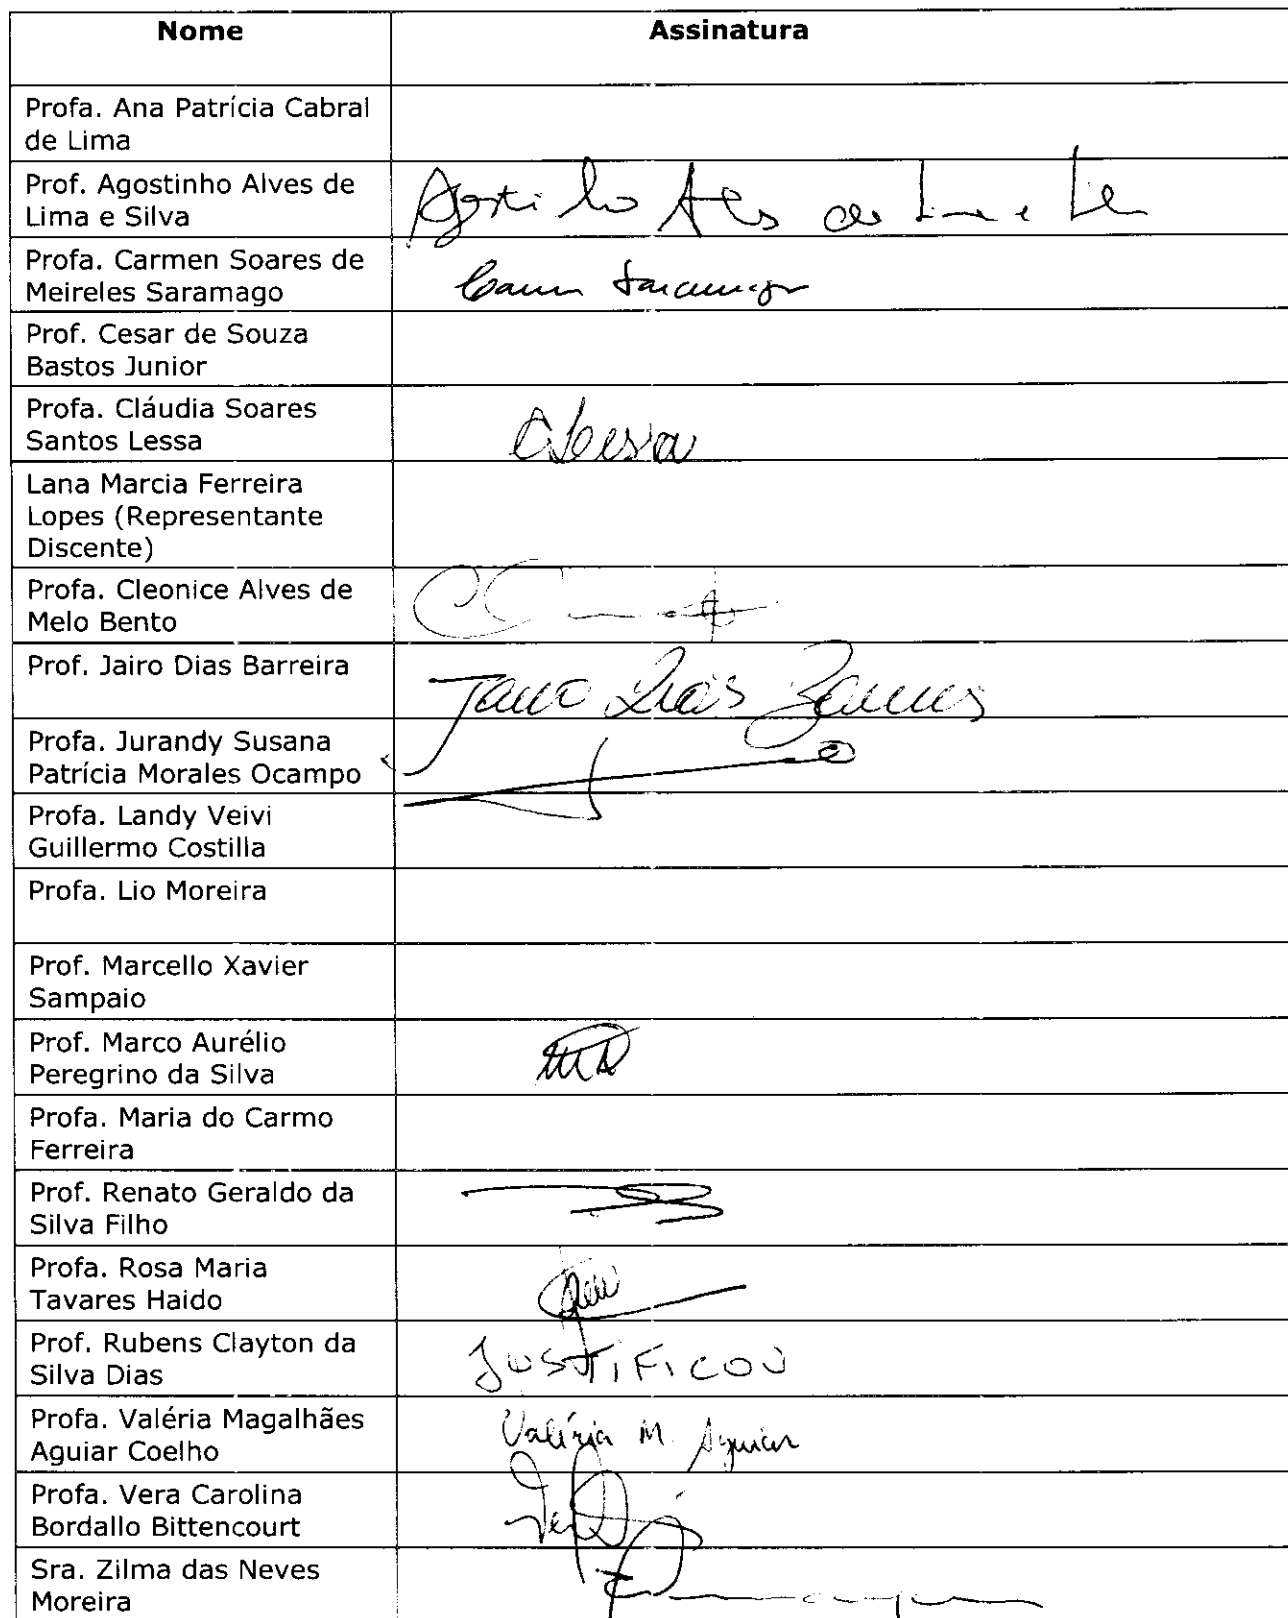 Nome
Assinatura
Profa. Ana Patrícia Cabral
de Lima
Prof. Agostinho Alves de
Lima e Silva
Agostinho Alves de Lima e Silva
Profa. Carmen Soares de
Meireles Saramago
Carmen Saramago
Prof. Cesar de Souza
Bastos Junior
Profa. Cláudia Soares
Santos Lessa
CLessa
Lana Marcia Ferreira
Lopes (Representante
Discente)
Profa. Cleonice Alves de
Melo Bento
Prof. Jairo Dias Barreira
Jairo Dias Barreira
Profa. Jurandy Susana
Patrícia Morales Ocampo
Profa. Landy Veivi
Guillermo Costilla
Profa. Lio Moreira
Prof. Marcello Xavier
Sampaio
Prof. Marco Aurélio
Peregrino da Silva
Profa. Maria do Carmo
Ferreira
Prof. Renato Geraldo da
Silva Filho
Profa. Rosa Maria
Tavares Haido
Prof. Rubens Clayton da
Silva Dias
JUSTIFICOU
Profa. Valéria Magalhães
Aguiar Coelho
Valéria M. Aguiar
Profa. Vera Carolina
Bordallo Bittencourt
Sra. Zilma das Neves
Moreira